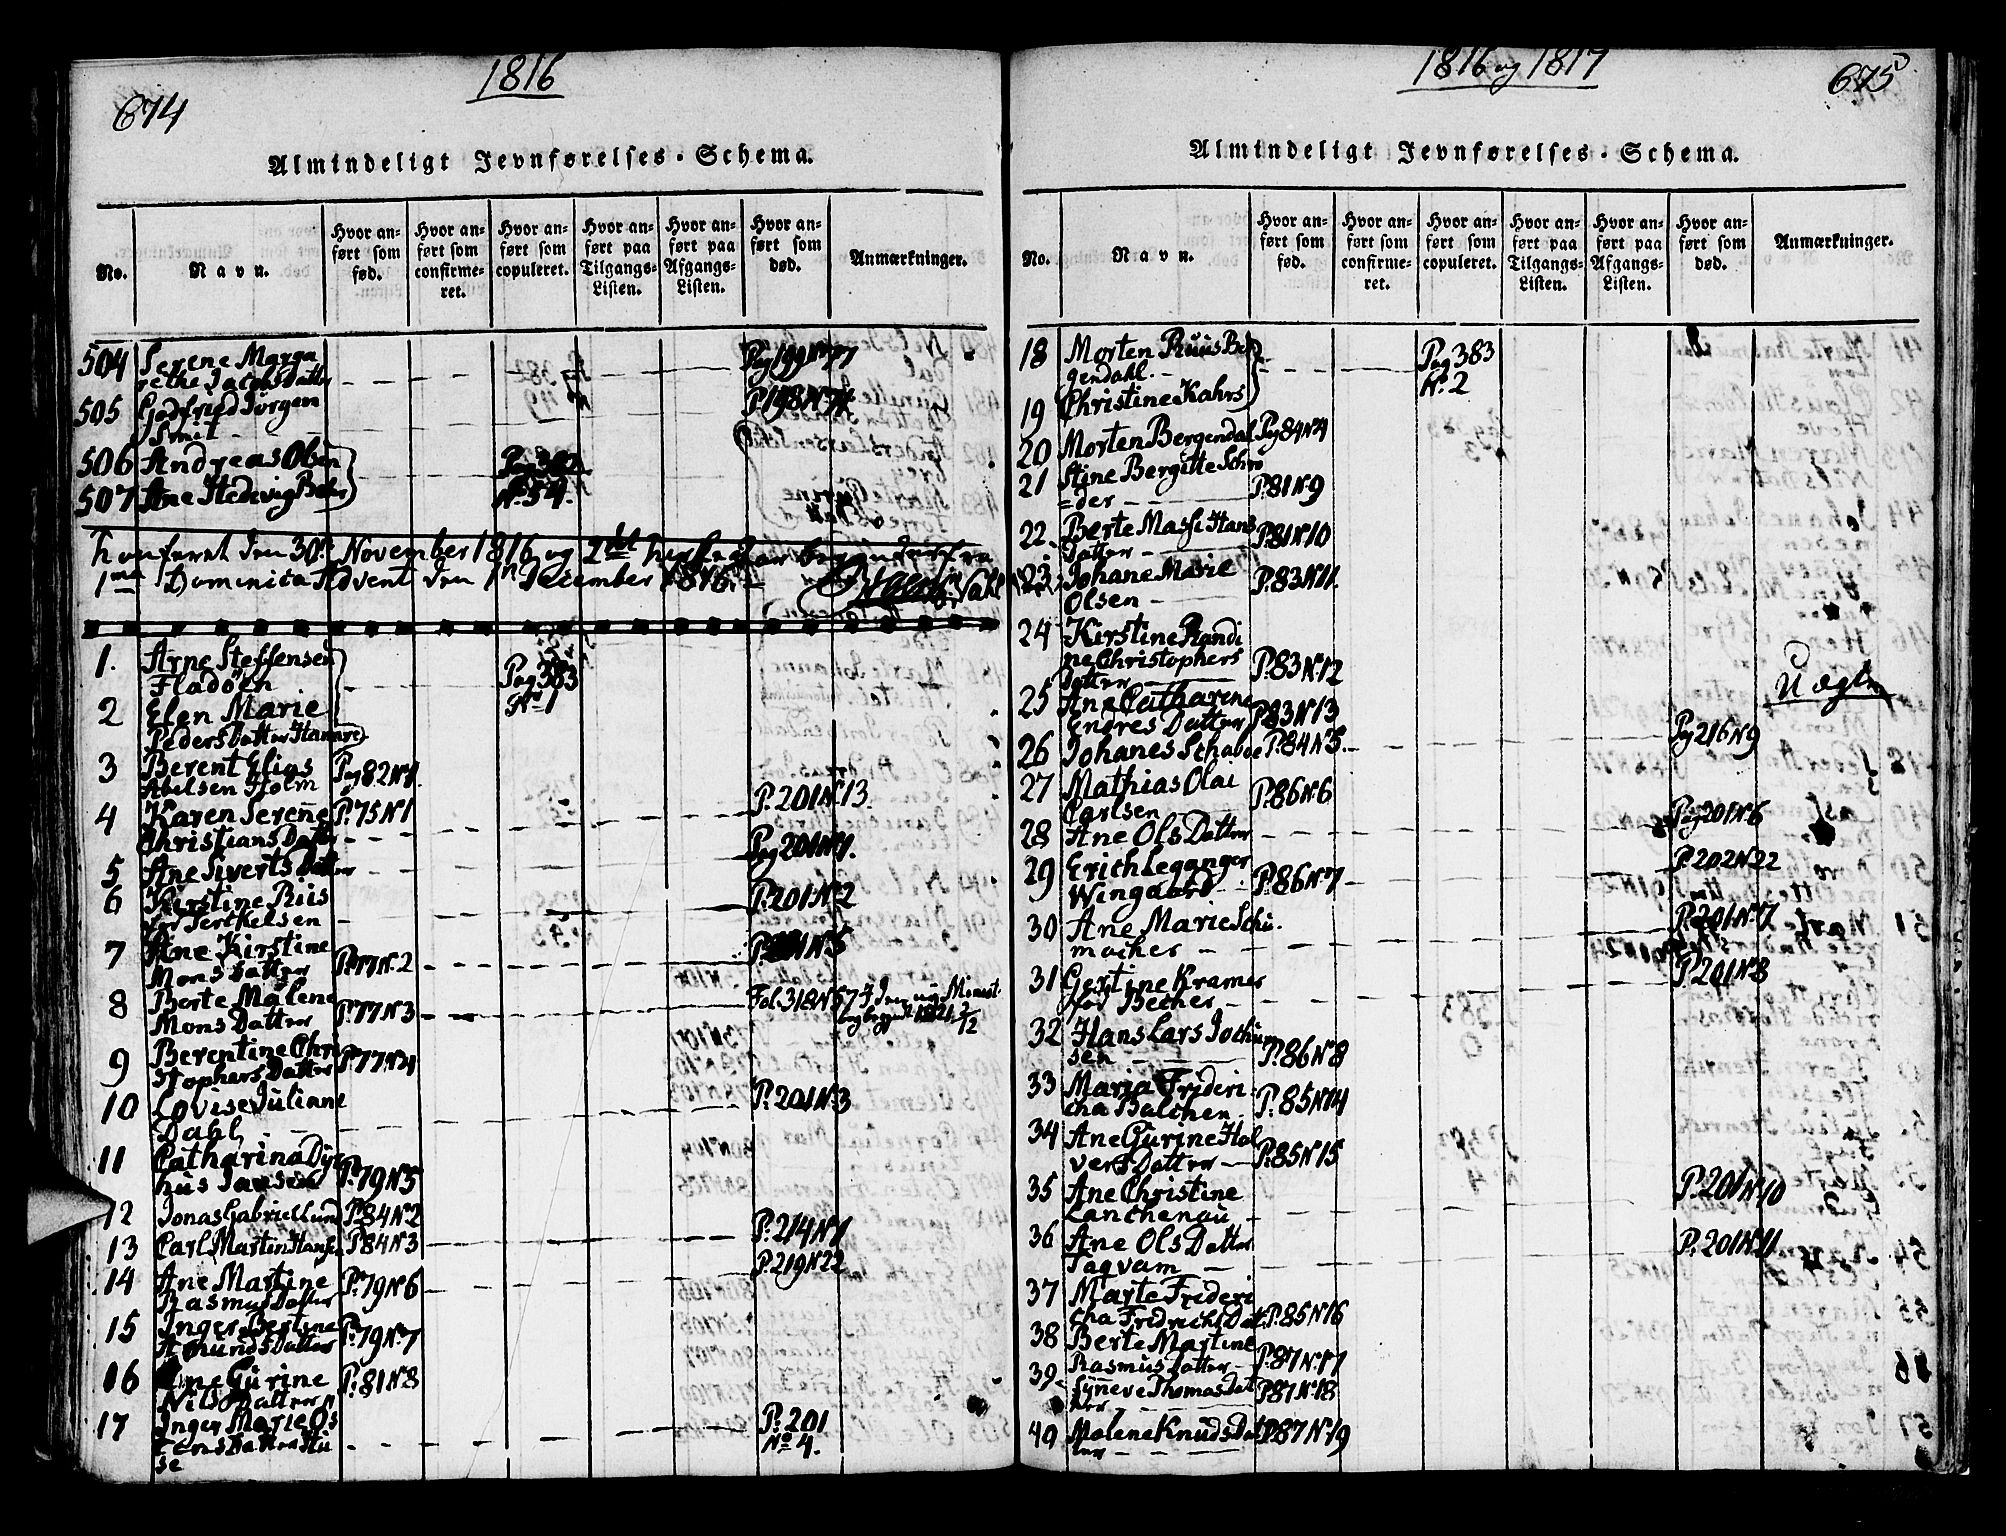 674
1816
Almindeligt Jevnførelses-Schema.
No.
Navn.
Hvor anført som fød.
Hvor anført som confirmeret.
Hvor anført som copuleret.
Hvor anført paa Tilgangs-Listen.
Hvor anført paa Afgangs-Listen.
Hvor anført som død.
Anmærkninger.
504 Serene Marga
rethe Jacobs Datter Pag 199 N 77
505 Godfried Jürgen
Smit P 198 N 74
506 Andreas Olsen Pag 382
507 Ane Hedevig Behr N. 54.
Konferet den 30te November 1816 og
1ma Dominica Advent den 1ste December 1816.
1. Arne Steffensen
Fladöen Pag 383
2 Elen Marie No 1
Peders Datter Hammre
3 Berent Elias Pag 82 N 1.
Abelsen Holm
4 Karen Serene P. 75 N 1 P. 201 N. 13.
Christians Datter
5 Ane Siverts Datter Pag 201 N 1.
6 Kirstine Riis
for Terckelsen P. 201 N. 2
7 Ane Kirstine
Mons Datter P. 77 N. 2 P. 201 N. 5
8 Berte Malene
Mons Datter P. 77 N 3 Fol. 318 N 57
9 Berentine Chri
stophers Datter P. 77 N 4
10 Lovise Juliane
Dahl P. 201 N. 3
11 Catharina Dyr
hüs Jansen P. 79 N 5
12 Jonas Gabriel Lund P. 84 N. 2
13 Carl Martin Hansen P. 84 N. 3 P. 214 N 1
14 Ane Martine
Rasmus Datter P. 79 N. 6 P. 219 N. 22
15 Inger Bertine
Amunds Datter P. 79 N. 7
16 Ane Gürine
Nils Datter P. 81 N. 8
17 Inger Marie Os
tens Datter Hü
se P. 201
No 4.
1816 og 1817
675
Almindeligt Jevnførelses-Schema.
No.
Navn.
Hvor anført som fød.
Hvor anført som confirmeret.
Hvor anført som copuleret.
Hvor anført paa Tilgangs-Listen.
Hvor anført paa Afgangs-Listen.
Hvor anført som død.
Anmærkninger.
18 Morten Ruus Ber
gendahl. Pag 383
19 Christine Kahrs N. 2
20 Morten Bergendal Pag 84 N 4
21 Stine Bergitte Schrø
=der P. 81 N. 9
22. Berte Massi Hans
Datter P. 81 N. 10
23. Johane Marie
Olsen P. 83 N. 11.
24 Kirstine Randi
ne Christophers
Datter P. 83 N. 12
25 Ane Catharene
Endres Datter P. 83 N. 13
26 Johanes Schaboe P. 84 N. 5. Pag 216 N 9
27 Mathias Olai
Carlsen P. 86 N. 6
28 Ane Ols Datter Pag 201 N. 6
29 Erich Leganger
Wengaard P. 86 N. 7 P. 202 N. 22
30 Ane Marie Schu
macher P. 201 N. 7
31 Gertine Kramer
for Becher P. 201 N. 8
32 Hans Lars Jochum
sen P. 86 N. 8
33 Maria Frideri
cha Balchen P. 85 N. 14
34 Ane Gürine Hol
vers Datter P. 85 N. 15
35 Ane Christine
Lanthenau P. 201 N. 10
36 Ane Ols Datter
Taqvam P. 201 N. 11
37 Marte Frideri
cha Fridrichs Dat. P. 85 N. 16
38 Berte Martine
Rasmus Datter P. 87 N. 17
39. Synneve Thomas Dat
ter P. 87 N. 18
40 Malene Knuds Dat
ter P. 87 N. 19